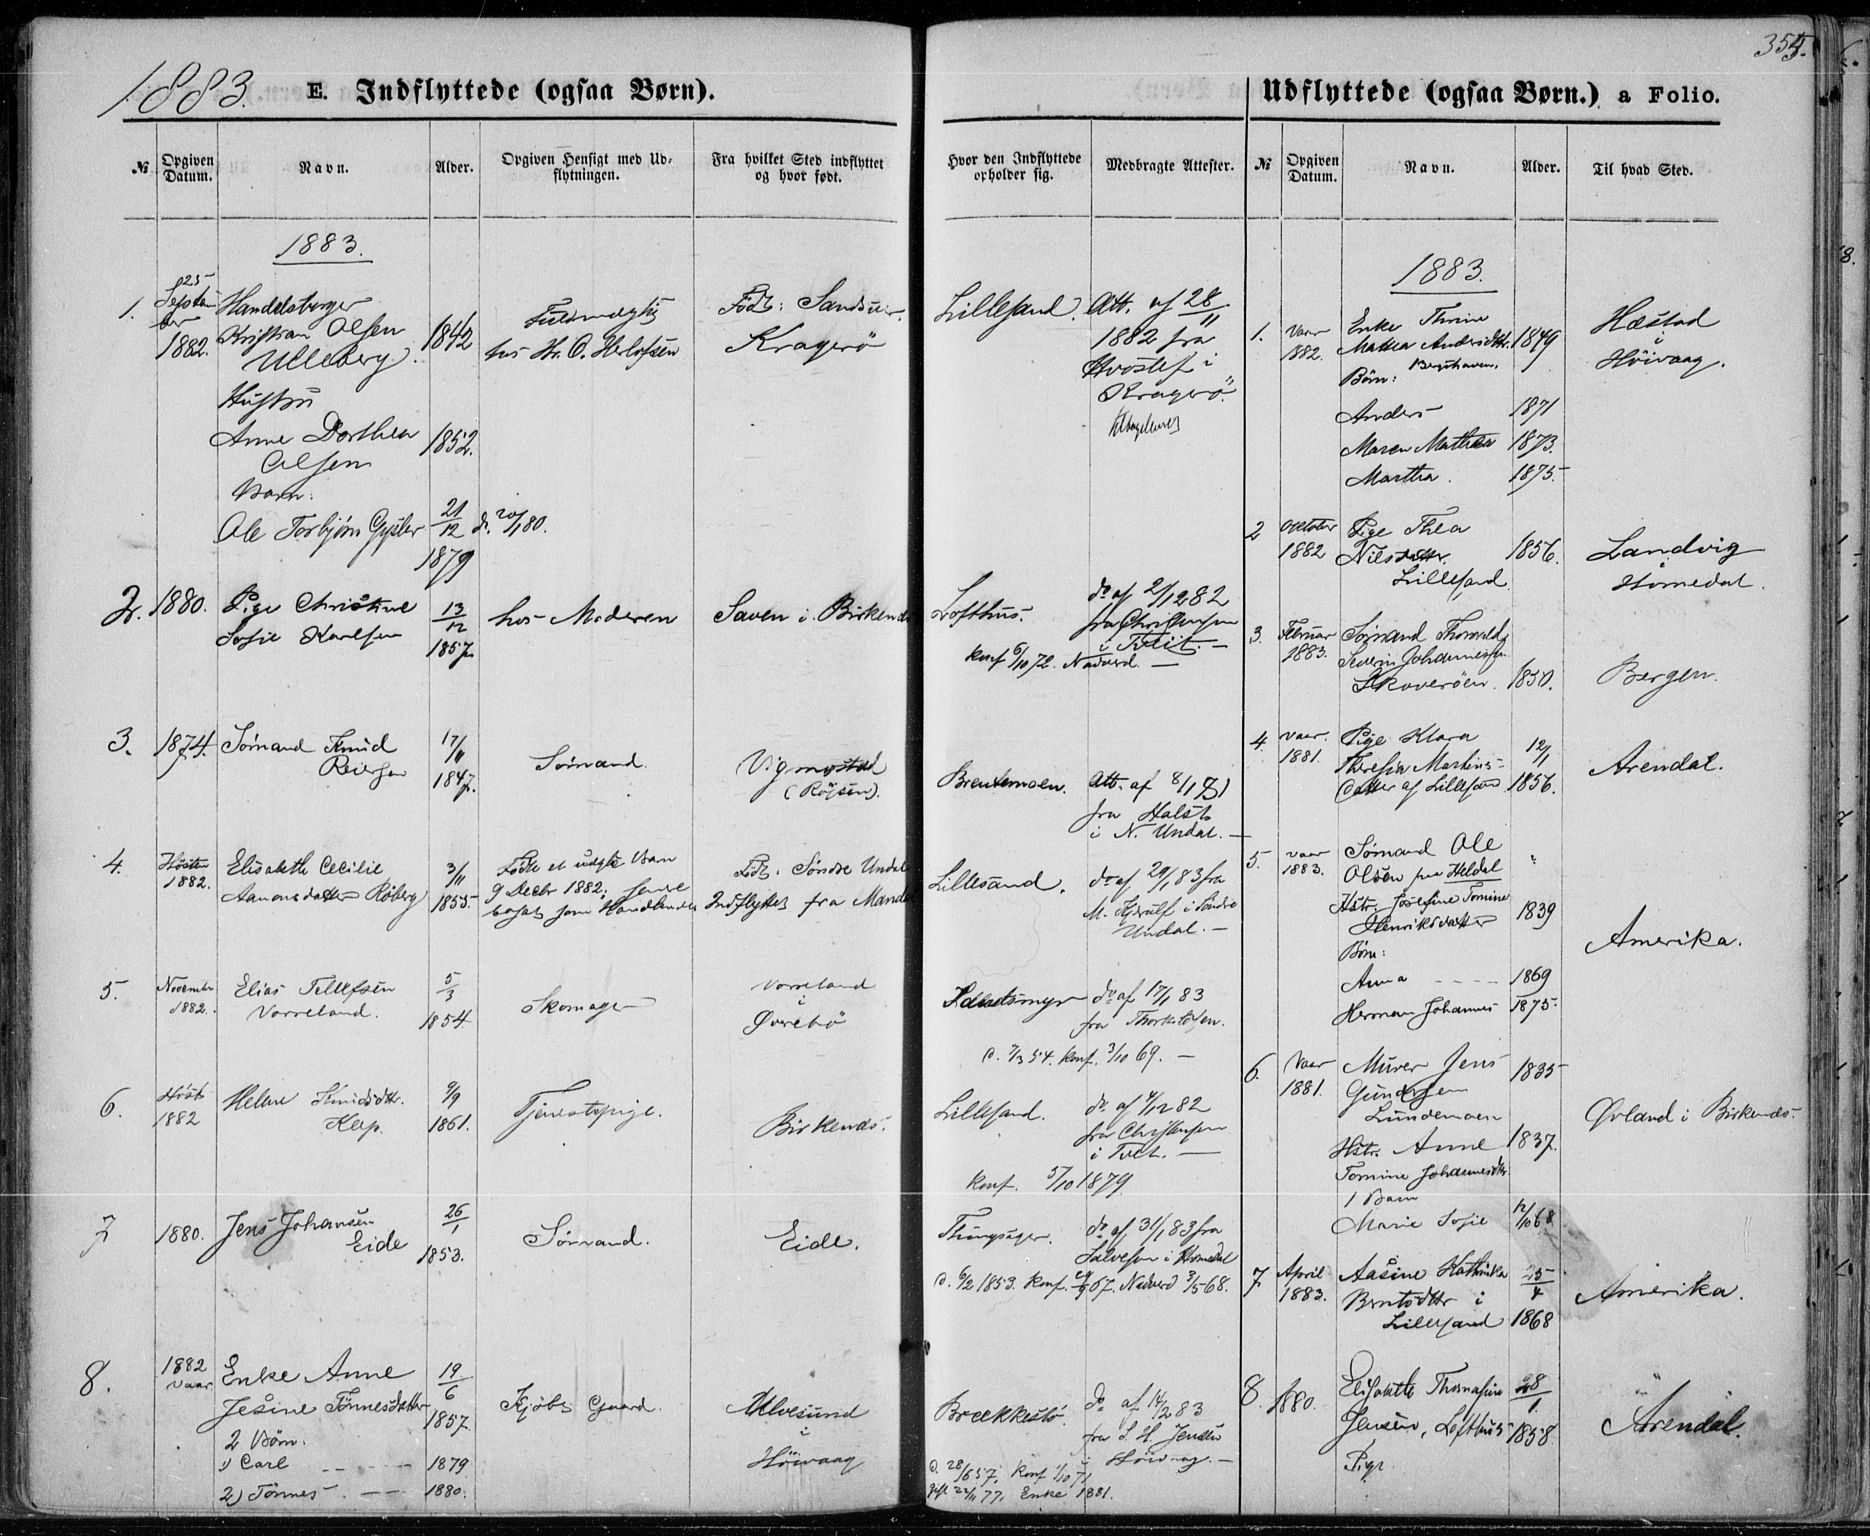 1883.
E. Indflyttede (ogsaa Børn).
№
Opgiven Datum.
Navn.
Alder.
Opgiven Hensigt med Udflytningen.
Fra hvilket Sted indflyttet og hvor født.
1883.
1.
25
Septem
ber
1882.
Handelsborger
Kristian Olsen
Ulleberg.
1842
hos Hr. O. Herlofsen
Født:
Kragerö
Hustru
Anne Dorthea
Olsen
1852.
Barn:
Ole Torbjörn
21/12
1879
2.
1880.
Pige Christine
Sofie Karlsen
13/12
1857.
hos Moderen
Saven i Birkenes
3.
1874.
Sömand Knud
Reiersen
17/11
1847.
Sömand.
Vigmostad
4.
Hösten
1882.
Elisabeth Cecilie
Aanonsdatter Röberg
3/11
1855
Födte et udgte Barn
9 Decbr 1882; senere
bosat som Handlende
Födt: Söndre Undal
Indflyttet fra Mandal
5.
November
1882.
Elias Tellefsen
Vorreland.
5/3
1854
Skomager
Vorreland
i
Øvrebö
6.
Höst
1882
Helene Knudsdttr.
9/9
1861.
Tjenestepige.
Birkenes.
7
1880.
Jens Johansen
Eide
26/1
1853.
Sömand.
Eide.
8.
1882
Vaar
Enke Anne
Jesine Tönnesdatter
19/6
1857.
2 Børn.
1) Carl
1879
2) Tönnes
1880.
Kjöbt Gaard.
Ulvesund
i
Höivaag
355.
Udflyttede (ogsaa Børn.) a Folio.
Hvor den Indflyttede opholder sig.
Medbragte Attester.
№
Opgiven Datum.
Navn.
Alder.
Til hvad Sted.
Lillesand.
Att. af 28/11
1882 fra
i
Kragerö.
Lofthus.
do af 2/12 82
fra Christensen
i Tveit.
konf 6/10 72. Nadverd.
Att. af
fra Halst
i N. Undal.
Lillesand.
do af 29/1 83 fra
M. Hjerulf i Söndre
Undal.
do af 17/1 83
fra
d. 7/3 54. konf. 3/10 69.
Lillesand.
do. af 4/12 82
fra Christensen
i Tvet.
konf. 5/10 1879
do af 31/1 83 fra
Salvesen i Homedal
d. 6/2 1853. Konf. 67. Nadverd 3/5 68.
Brækkestö.
do af 14/2 83
fra S. H. Jensen
i Höivaag.
d. 28/6 57. Konf 1/10 71
gift 22/11 77. Enke 1881.
1883.
1.
Vaar
1882.
Enke Thrine
Mathea Andersdttr.
1849
Hæstad
i
Höivaag.
Börn:
Anders
1871
Maren Mathea
1873.
Martha.
1875.
2
Oktober
1882
Pige Thea
Nilsdatter.
Lillesand.
1856.
Landvig
Homedal.
3.
Februar
1883.
Sömand Thorvald
Severin Johannessen
Skoveröen.
1850.
Bergen.
4.
Vaar.
1881.
Pige Klara
Theresia Martins-
datter af Lillesand
12/1
1856.
Arendal.
5.
Vaar
1883.
Sömand Ole
Olsen fra Heldal
Hstr. Josefine Tomine
Henriksdatter
1839
Amerika.
Börn:
Anna
1869
Herman Johannes
1875.
6.
Vaar
1881.
Murer Jens
Gundersen
Lundemoen
1835
Øvland i Birkenes.
Hstr. Anne
Tomine Johannesdttr
1837.
1 Barn
Marie Sofie
12/10 68.
7
April
1883.
Aasine Kathrika
Berntsdttr i
Lillesand
25/4
1868
Amerika.
8
1880.
Elisabeth Thomasine
Jensen, Lofthus
Pige.
28/1
1858.
Arendal.